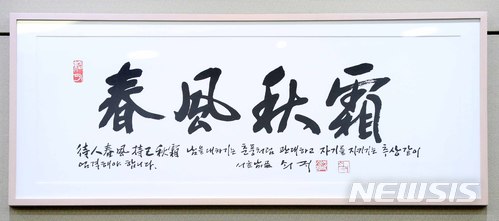 春風秋霜
待人春風 持己秋霜 남을 대하기는 춘풍처럼 관대하고 자기를 지키기는 추상같이
엄격해야 합니다.
NEWSIS